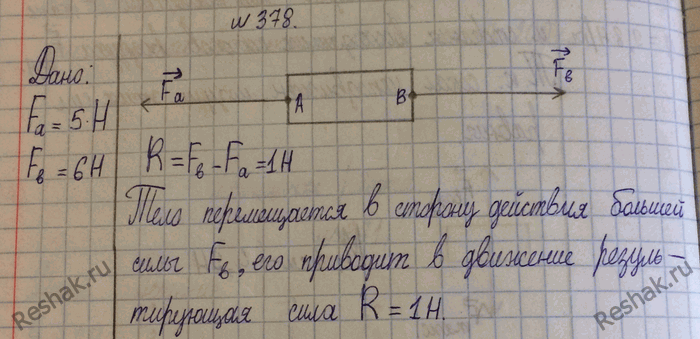 №378.
Дано:
Fₐ = 5·Н
F_в = 6Н
Fₐ
A
B
F_в
R = F_в - Fₐ = 1Н
Тело перемещается в сторону действия большей
силы F_в, его приводит в движение резуль-
тирующая сила R = 1Н.
Reshak.ru
Reshak.ru